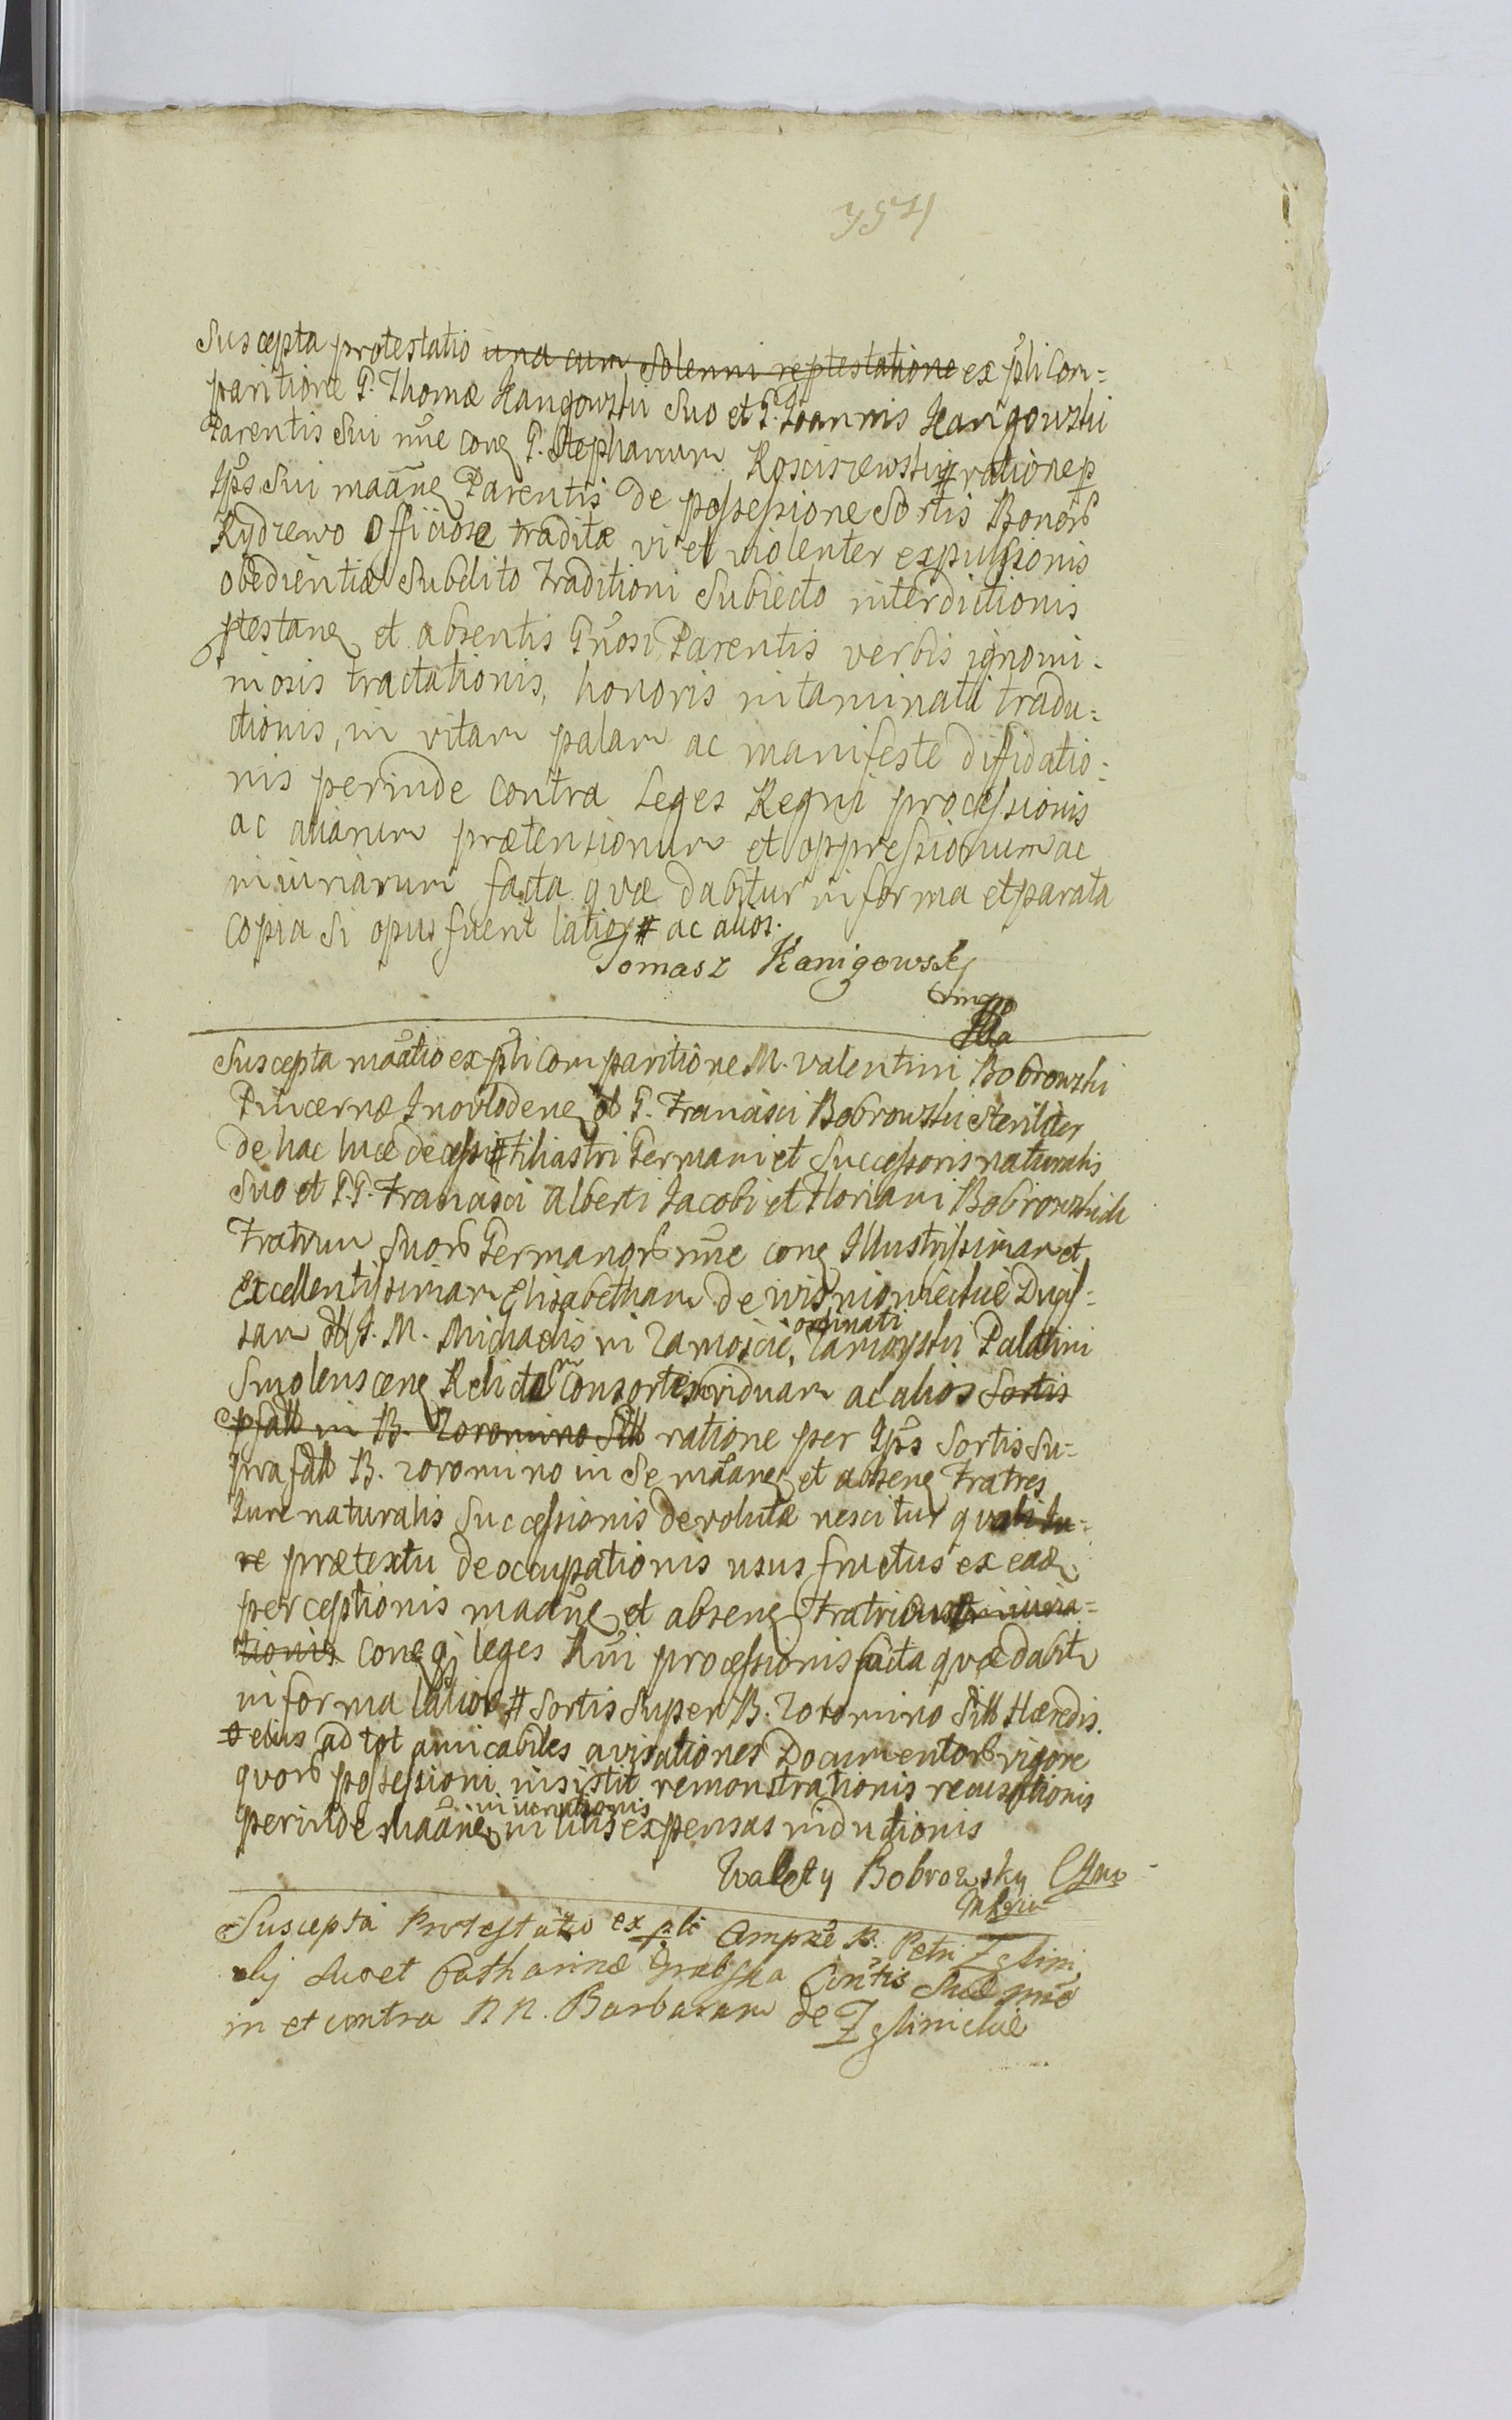 Suscepta protestatio una cum Solenni reptestatione ex pŝti Com=
paritione G. Thomæ Kanigowski Suo et G. Joannis Kanigowski
Parentis Sui nñe conq G. Stephanum Kosciszewski # ratione p
Ipŝs Sui maãneq Parentis de possessione Sortis Bonorb
Rydzewo Officiose traditæ vi et violenter expulsionis
obedientiæ Subdito traditioni Subiecto interdictionis
ptestaneq et absentis Gñosi Parentis verbis ignomi=
niosis tractationis, honoris intaminati tradu=
ctionis, in vitam palam ac manifeste diffidatio=
nis perinde contra Leges Regni processionis
ac aliarum prætensionum et oppressionum ac
iniuriarum facta quæ dabitur in forma et parata
copia si opus fuerit latior # ac alios.
Tomasz Kanigowsky
mpp
Suscepta maãtio ex pŝti Comparitione M. Valentini Bobrowski
Pincernæ Inovlodeneq ob G. Francisci Bobrowski Steriliter
de hac luce decessi # Filiastri Germani et Successoris naturalis
Suo et G.G. Francisci Alberti Jacobi et Floriani Bobrowskich
Fratrum Suorb Germanorb nñe conq Illustrissimam et
Excellentissimam Elisabetham de Wisniowieckie Ducis=
sam ob I. M. Michaelis in Zamoscie ordinati Zamoyski Palatini
Smolensceneq Relictam Consortem viduam ac alios Sortis
psatt in B. Zoromino Sitt ratione per Ipŝs Sortis Su=
pra fatt B. Zoromino in Se maãneq et abseneq Fratres
Iure naturalis Successionis devolutæ nescitur quali Iu=
re prætextu deoccupationis usus fructus ex eadeq
perceptionis maãneq et abseneq Fratribus iniuria=
tionis coneqj leges Rñi processionis facta quæ dabitr
in forma latior # Sortis Super B. Zoromino Sitt Hæredis.
# eius ad tot amicabiles avisationes Documentorb vigore
quorb possessioni insistit remonstrationis recusationis
perinde maãneq iniuriationis in litis expensas inductionis
Walęty Bobrowsky CJno
mpp
Suscepta Protestatio ex pŝti Compñe N. Petri Zglini
ckj Suo et Catharinæ Grabska Contis Suæ nñe
in et contra NN. Barbaram de Zglinickie